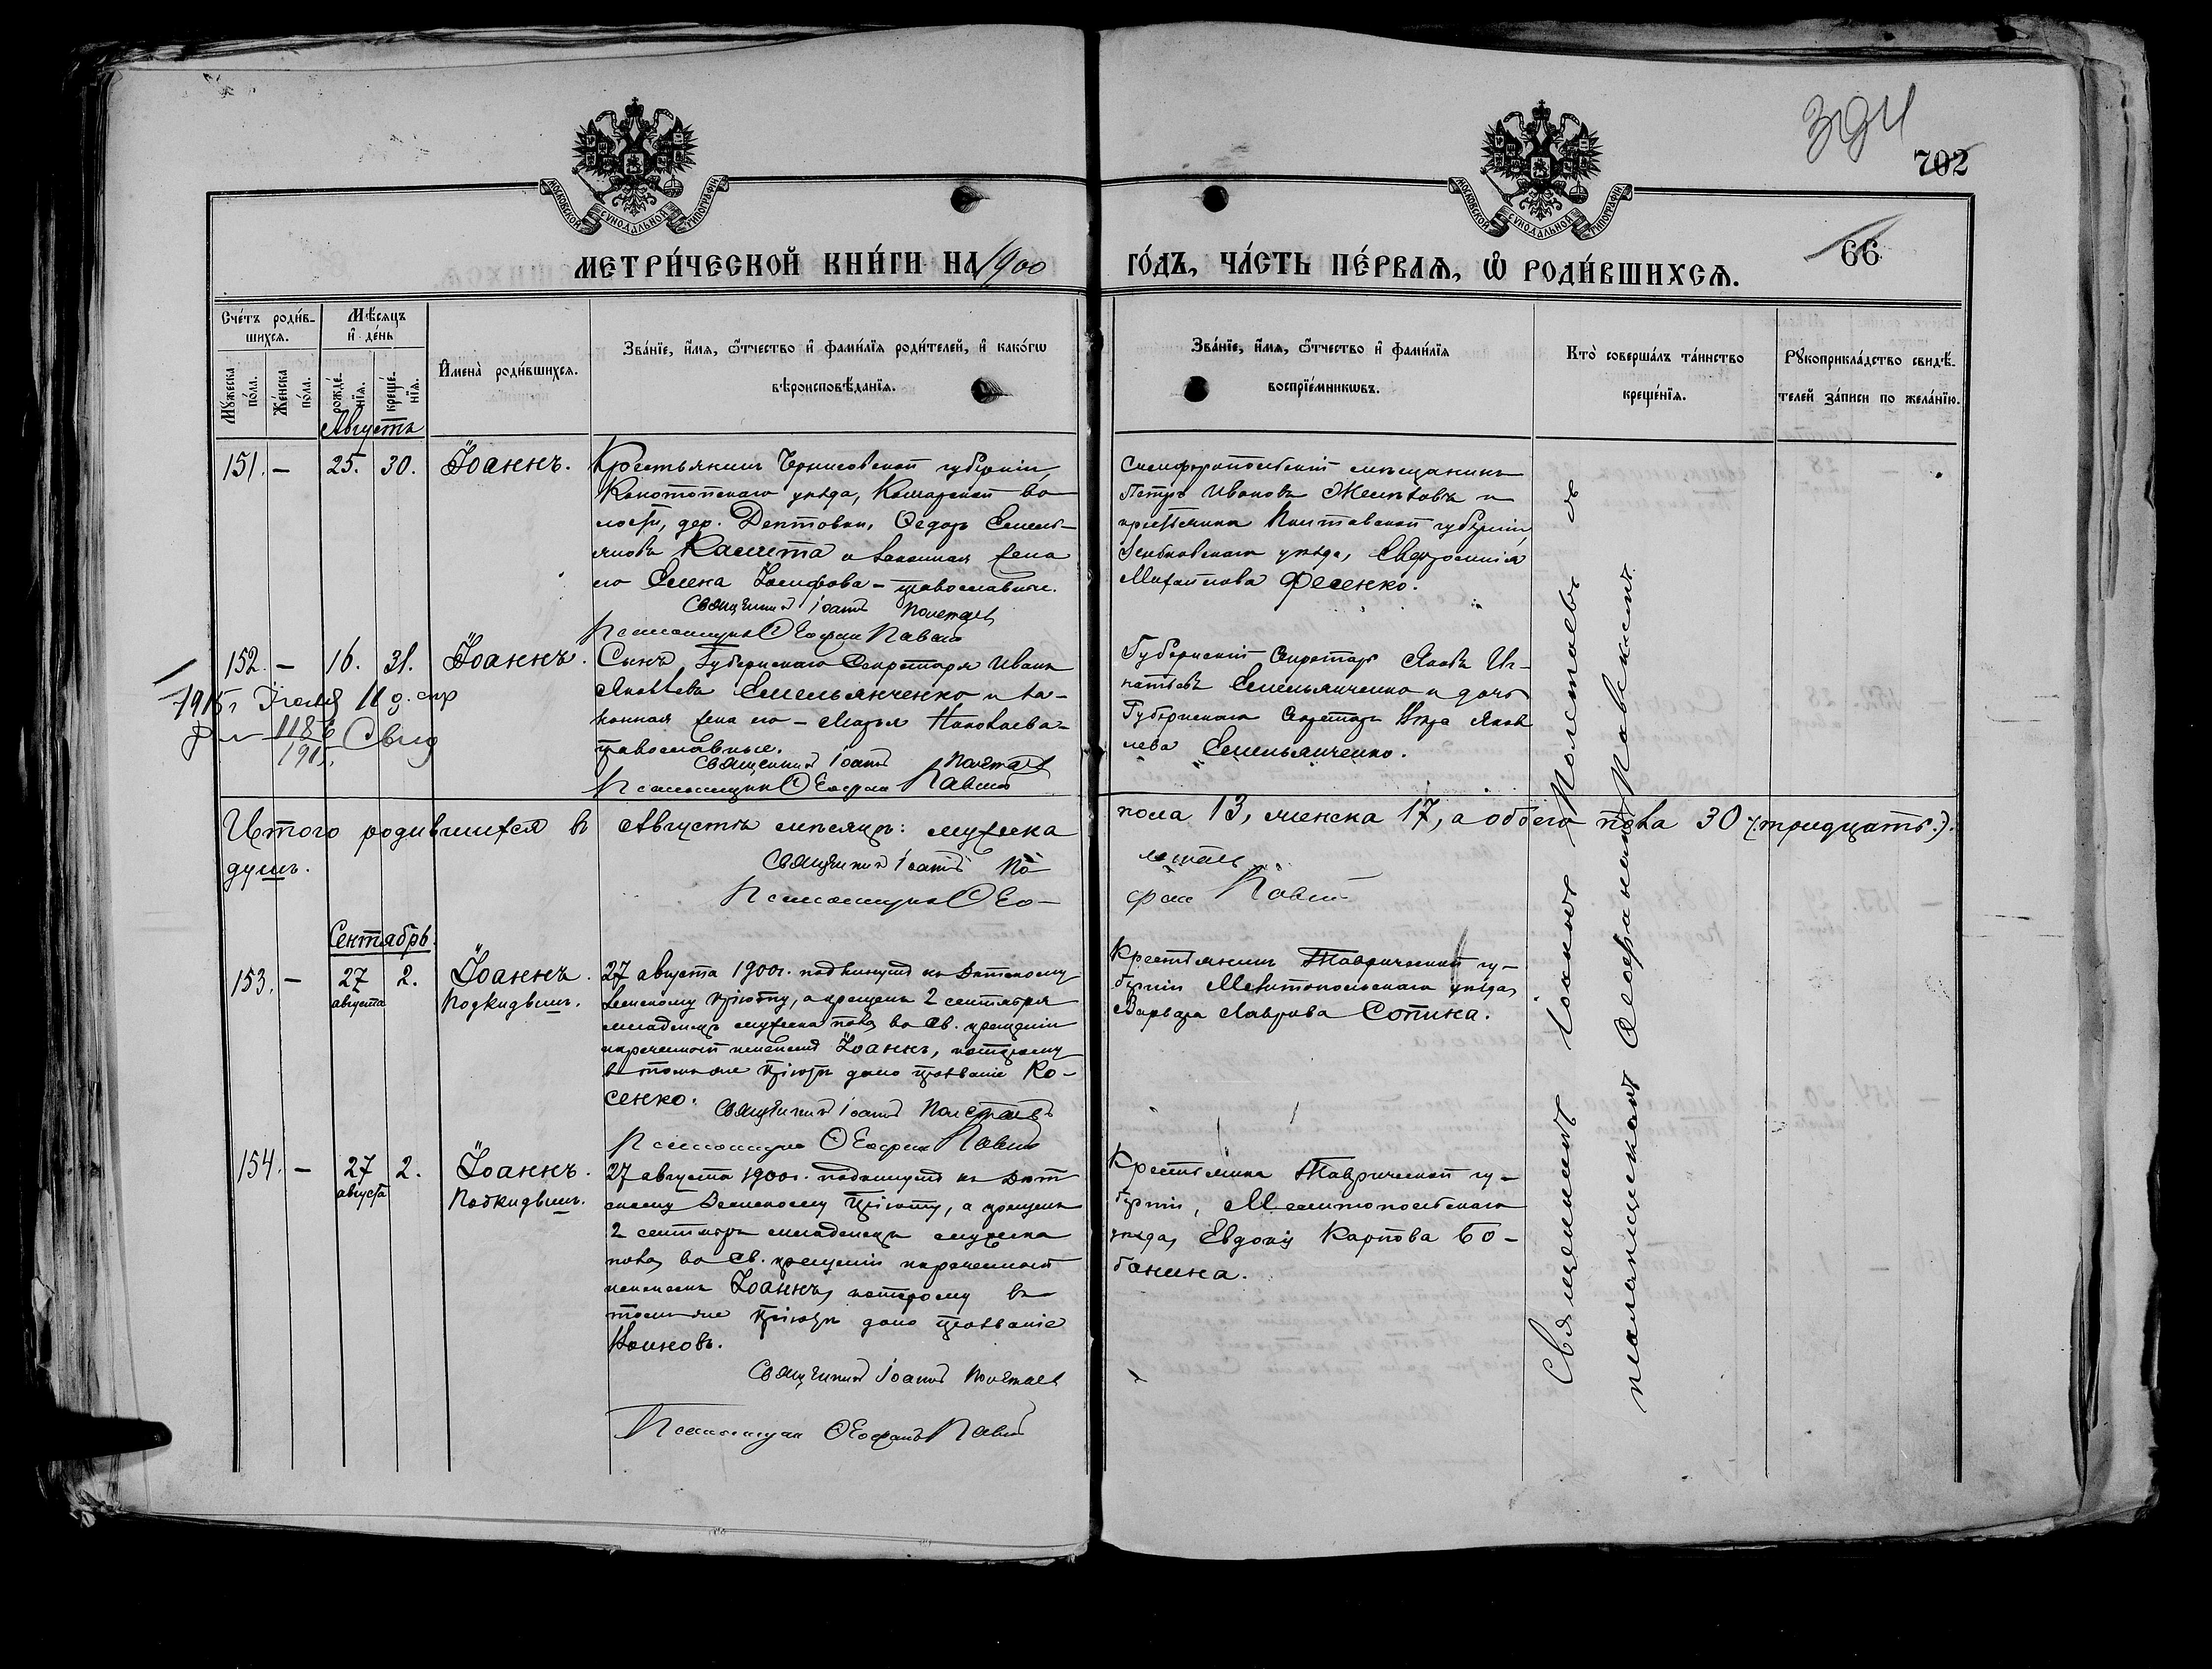 394
702
МОСКОВСКОЙ СѴНОДАЛЬНОЙ ТИПОГРАФІИ
МОСКОВСКОЙ СѴНОДАЛЬНОЙ ТИПОГРАФІИ
МЕТРИ́ЧЕСКОЙ КНИ́ГИ НА 1900
ГО́ДЪ, ЧА́СТЬ ПЕ́РВАѦ, Ѡ҆ РОДИ́ВШИХСѦ.
66
Сче́тъ роди́в-
шихсѧ.
Мꙋ́жеска по́ла.
Же́нска по́ла.
Мѣ́сѧцъ
и҆ де́нь
рожде́-
нїѧ.
креще́-
нїѧ.
Августъ
И҆мена̀ роди́вшихсѧ.
Зва́нїе, и҆́мѧ, ѻ҆́тчество и҆ фами́лїѧ роди́телей, и҆ како́гѡ
вѣроисповѣ́данїѧ.
Зва́нїе, и҆́мѧ, ѻ҆́тчество и҆ фами́лїѧ
воспрїе́мникѡвъ.
Кто̀ соверша́лъ та́инство
креще́нїѧ.
Рꙋкоприкла́дство свидѣ́-
телей за́писи по жела́нїю.
151. – 25. 30. Іоаннъ.
Крестьянинъ Черниговской губерніи,
Конотопскаго уѣзда, Комарской во-
лости, дер. Дептовки, Ѳедоръ Емель-
яновъ Калита и законная жена
его Елена Іосифова – православные.
Священникъ Іоаннъ Полетаевъ
Псаломщикъ Ѳеофанъ Павскій
Симферопольскій мѣщанинъ
Петръ Ивановъ
крестьянка Полтавской губерніи
уѣзда, Евфросинія
Михайлова Фесенко.
152. – 16. 31. Іоаннъ.
Сынъ Губернскаго Секретаря Иванъ
Яковлевъ Емельянченко и за-
конная жена его – Марья Николаева –
православные.
Священникъ Іоаннъ Полетаевъ
Псаломщикъ Ѳеофанъ Павскій
Губернскій Секретарь Яковъ Иг-
натьевъ Емельянченко и дочь
Губернскаго Секретаря Яков-
лева Емельянченко.
1915 г. Іюля 11 д.
1186
1915 г.
Итого родившихся въ Августѣ мѣсяцѣ: мужеска
пола 13, женска 17, а обоего пола 30 (:тридцать:).
душъ.
Священникъ Іоаннъ По-
летаевъ
Псаломщикъ Ѳео-
фанъ Павскій
Сентябрь.
153. – 27 августа 2. Іоаннъ.
Подкидышъ.
27 августа 1900 г. подкинутъ къ Дѣтскому
Земскому Пріюту, а крещенъ 2 сентября
младенецъ мужеска пола, во Св. крещеніи
нареченный именемъ Іоаннъ, которому
въ томъ же Пріютѣ дано прозваніе Ко-
сенко.
Священникъ Іоаннъ Полетаевъ
Псаломщикъ Ѳеофанъ Павскій
Таврической гу-
берніи Мелитопольскаго уѣзда,
Варвара Лаврова Сопина.
154. – 27 августа 2. Іоаннъ.
Подкидышъ.
27 августа 1900 г. подкинутъ къ Дѣт-
скому Земскому Пріюту, а крещенъ
2 сентября младенецъ мужеска
пола, во Св. крещеніи нареченный
именемъ Іоаннъ, которому въ
томъ же Пріютѣ дано прозваніе
Священникъ Іоаннъ Полетаевъ
Псаломщикъ Ѳеофанъ Павскій
Крестьянка Таврической гу-
берніи, Мелитопольскаго
уѣзда, Евдокія Карпова Бо-
банина.
Священникъ Іоаннъ Полетаевъ съ
псаломщикомъ Ѳеофаномъ Павскимъ.